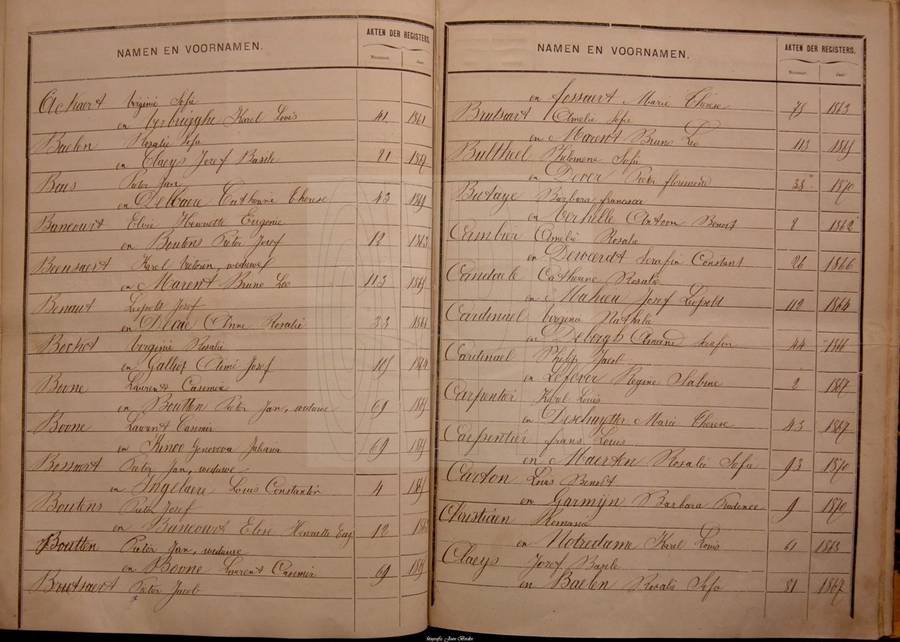 NAMEN EN VOORNAMEN.
AKTEN DER REGISTERS.
Nummer. Jaar.
Ackaert Virginie Sofie
en Verbrigghe Karel Louis 41 1861
Baelen Rosalie Sofie
en Claeys Josef Basile 21 1867
Baes Pieter Jan
en Catharine Therese 43 1869
Bancourt Elise Henriette Eugenie
en Boutens Pieter Josef 12 1863
Karel Victorien, weduwe
en Marent Bruno Leo 113 1869
Benaut Liepolt Josef
en Anne Rosalie 33 1861
Virginie Rosalie
en Galliot Aimé Josef 1864
Boone Laurent Casemier
en Boutten Pieter Jan, weduwe 69 1869
Boone Laurent Casimir
en Kinoo Genoveva Juliana 69 1869
Bossaert Pieter Jan, weduwe
en Ingelaere Louis Constantin 4
Boutens Pieter Josef
en Bancourt Elise Henriette Eug 12 1863
Boutten Pieter Jan, weduwe
en Boone Laurent Casemier 69 1869
Brutsaert Pieter Jacob
NAMEN EN VOORNAMEN.
AKTEN DER REGISTERS.
Nummer. Jaar.
en Fossaert Marie Therese 78 1863
Brutsaert Amelie Sofie
en Marent Bruno Leo 113 1869
Bultheel Philomene Sofie
en Dever Pieter 38 1870
Butaye Barbara francisca
en Verhille Antoon Benoit 8 1862
Cambier Amelie Rosalie
en Dewaerdt Serafin Constant 26 1866
Candaele Catharine Rosalie
en Mahieu Josef Liepolt 112 1864
Cardinael Virginie Nathalie
en Debergh Serafien 44
Cardinael Philip Jacob
en Lefever Regine Sabine 2 1867
Carpentier Karel Louis
en Deschuytter Marie Therese 43 1867
Carpentier frans Louis
en Maerten Rosalie Sofie 93 1870
Carton Louis Benoit
en Garmijn Barbara Prudence 9 1870
Christiaen Romanie
en Notredame Karel Louis 61 1863
Claeys Josef Basile
en Baelen Rosalie Sofie 21 1867